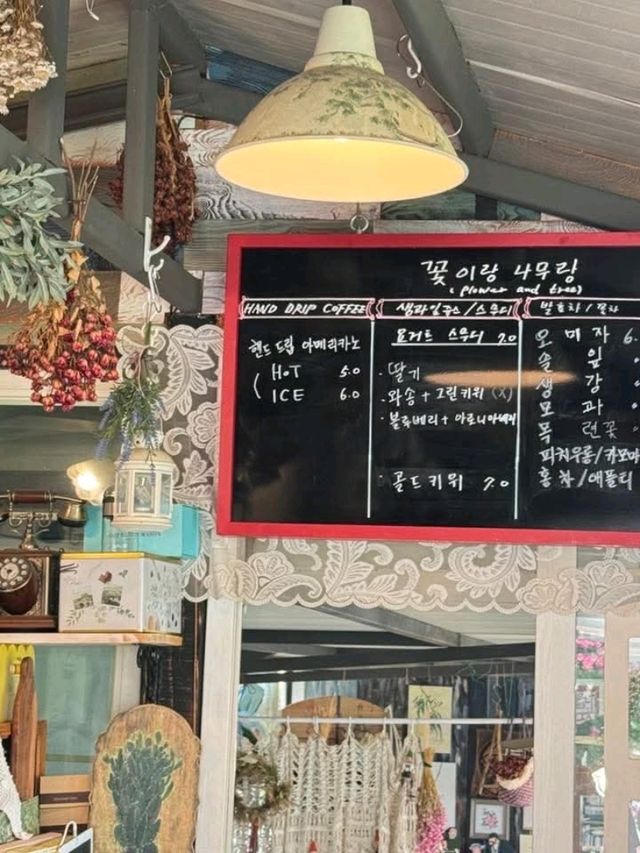 꽃이랑 나무랑
(flower and tree)
HAND DRIP COFFEE
핸드드립 아메리카노
HOT 5.0
ICE 6.0
생과일쥬스/스무디
요거트 스무디 7.0
· 딸기
· 와송 + 그린키위 (X)
· 블루베리 + 아로니아
· 골드키위 7.0
발효차/꽃차
오미자 6.
솔잎
생강
모과
목련꽃
피치우롱/카모마
홍차/애플티